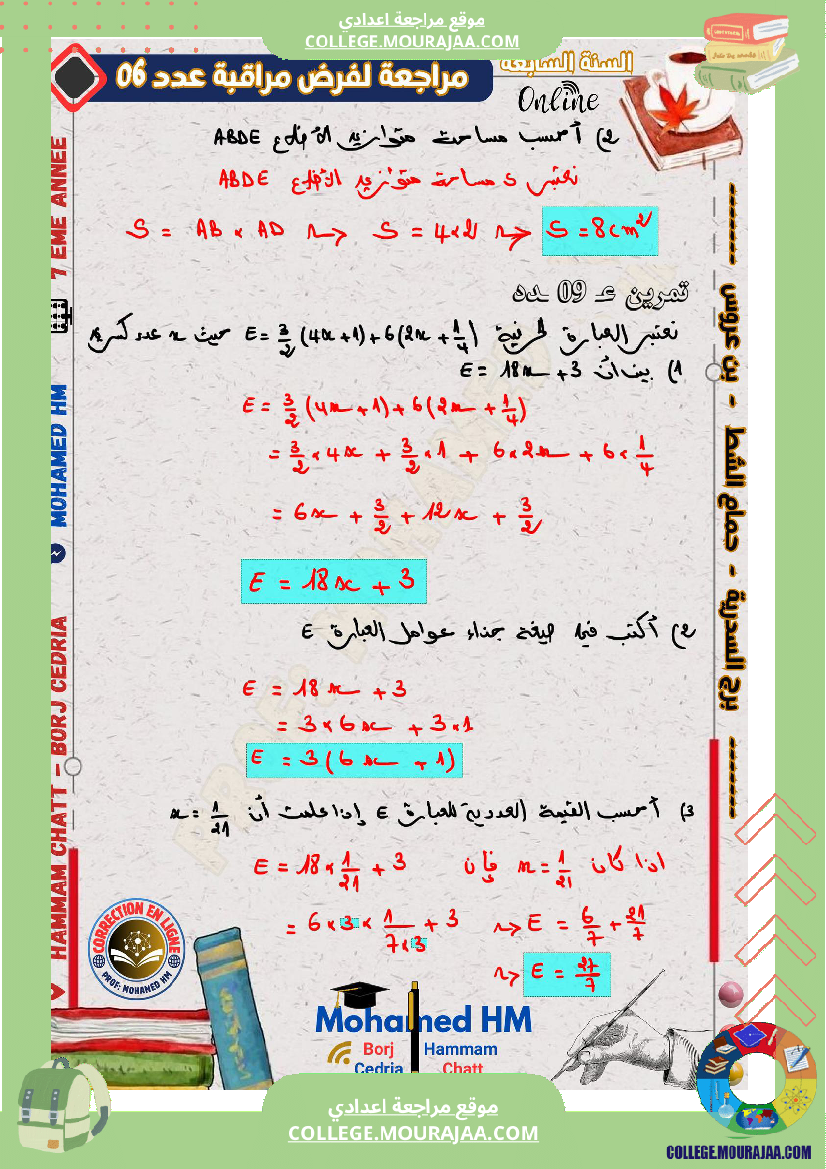 موقع مراجعة اعدادي
COLLEGE.MOURAJAA.COM
السنة السابعة
مراجعة لفرض مراقبة عدد 06
Online
2) أحسب مساحة متوازي الأضلاع ABDE
نعتبر S مساحة متوازي الأضلاع ABDE
S = AB × AD ⤳ S = 4×2 ⤳ S = 8cm²
تمرين عـ 09 ـدد
نعتبر العبارة الحرفية E = 3/2 (4x+1) + 6(2x + 1/4) حيث x عدد كسري
1) بين أن E = 18x + 3
E = 3/2 (4x + 1) + 6(2x + 1/4)
= 3/2 × 4x + 3/2 × 1 + 6×2x + 6 × 1/4
= 6x + 3/2 + 12x + 3/2
E = 18x + 3
2) أكتب في صيغة جذاء عوامل العبارة E
E = 18x + 3
= 3×6x + 3×1
E = 3(6x + 1)
3) أحسب القيمة العددية للعبارة E إذا علمت أن x = 1/21
اذا كان x = 1/21 فإن E = 18 × 1/21 + 3
= 6×3 × 1/(7×3) + 3 ⤳ E = 6/7 + 21/7
⤳ E = 27/7
7 EME ANNEE
MOHAMED HM
HAMMAM CHATT - BORJ CEDRIA
برج السدرية - حمام الشط - بن عروس
CORRECTION EN LIGNE
PROF: MOHAMED HM
Mohamed HM
Borj Cedria
Hammam Chatt
موقع مراجعة اعدادي
COLLEGE.MOURAJAA.COM
COLLEGE.MOURAJAA.COM